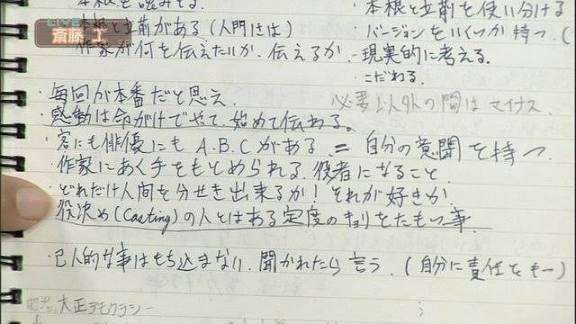 本根を読みとる。
斎藤 工
本根と立前がある(人間には)
作家が何を伝えたいか、伝えるか
・本根と立前を使い分ける
・バージョンをいくつか持つ (
・現実的に考える。
・こだわる。
・毎回が本番だと思え
・感動は命がけでやって、始めて伝わる。
必要以外の間はマイナス
・客にも俳優にも A.B.Cがある = 自分の意図を持つ
・作家にあく手をもとめられる役者になること
・どれだけ人間を分せき出来るか!それが好きか
・役決め(Casting)の人とはある定度のキョリをたもつ事
・己人的な事はもち込まない。聞かれたら言う。(自分に責任をもー)
大正デモクラシー